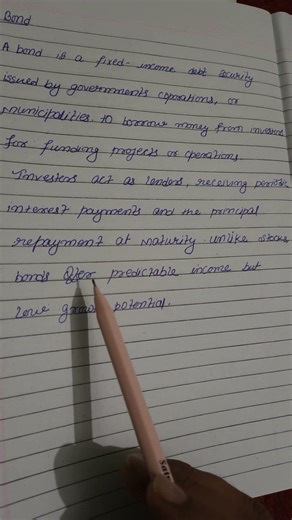 Bond
A bond is a fixed-income debt security
issued by governments coporations, or
municipalities to borrow money from investors
for funding projects or operations.
Investors act as lenders, receiving
interest payments and the principal
repayment at maturity unlike stocks
bonds offer predictable income but
low potential.